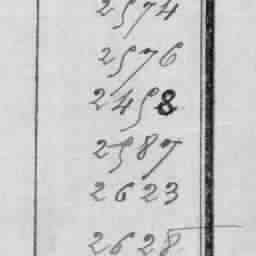 2574
2576
2458
2587
2623
2628